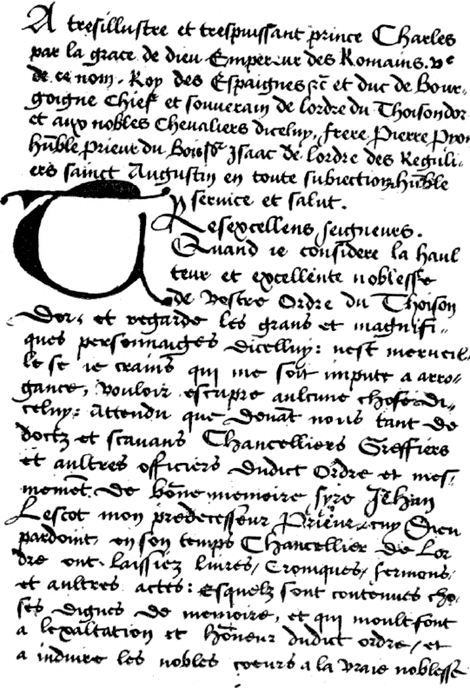 A tresillustre et trespuissant prince Charles
par la grace de dieu Empereur des Romains. Ve
de ce nom. Roy des Espaignes etc et duc de Bour-
goigne Chief et souverain de lordre du Thoisondor
et aux nobles Chevaliers dicelluy, frere Pierre Pyon
hūble Prieur du Isaac de lordre des Reguli-
ers sainct Augustin en toute subiection, hūble
service et salut.
Tresexcellens seigneurs.
Quand ie considere la haul
teur et excellēte noblesse
de vostre Ordre du Thoison
Dor, et regarde les grans et magnifi-
ques personnaiges dicelluy: nest merveil-
le se ie crains qui me soit impute a arro-
gance, vouloir escripre aulcune chose di-
celuy: Attendu que devāt nous tant de
doctz et scavans Chancelliers Greffiers
et aultres officiers dudict Ordre et mes-
memēt de bōne memoire syre Jehan
Lescot mon predecesseur Prieur, cuy Dieu
pardoint, en son temps Chancellier de Lor
dre ont laissiez livres, Croniques, sermons,
et aultres actes: esquelz sont contenues cho-
ses dignes de memoire, et qui moult font
a lexaltation et hōneur dudict ordre, et
a induire les nobles coeurs a la vraie noblesse